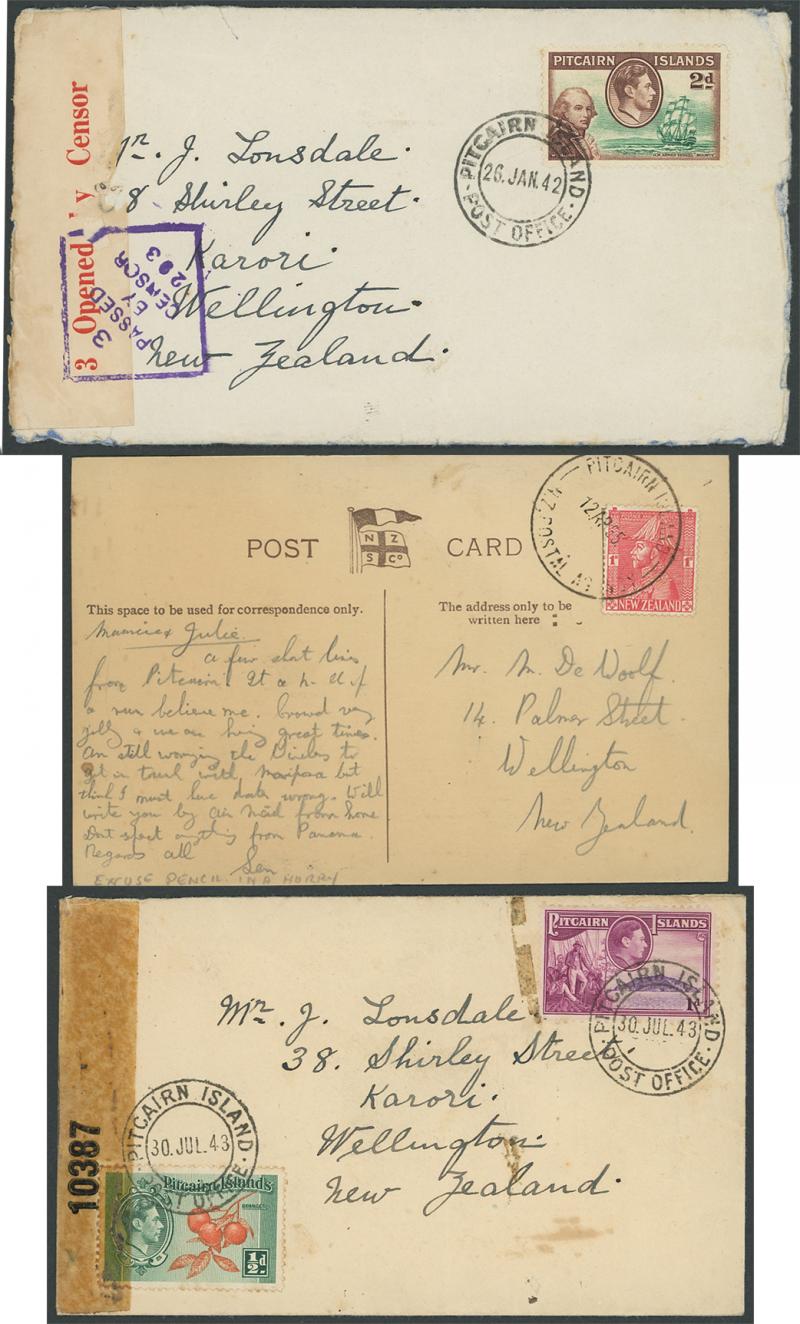 PITCAIRN ISLANDS
2d
PITCAIRN ISLAND
26.JAN.42
POST OFFICE
3 Opened by Censor
Mr. J. Lonsdale.
38 Shirley Street.
Karori.
Wellington.
New Zealand.
3
PASSED
BY
CENSOR
293
POST CARD
N Z
S Co
PITCAIRN ISLAND
12 AP 35
N.Z. POSTAL AGENCY
1d 1d
NEW ZEALAND
This space to be used for correspondence only.
The address only to be
written here
Julie.
a few short lines
from Pitcairn. It a h. ll of
a run believe me. Crowd very
jolly & we are having great times.
Am still worrying the to
get in touch with Mariposa but
think I must have date wrong. Will
write you by air Mail from home
Dont expect anything from Panama.
Regards all
EXCUSE PENCIL. IN A HURRY
Mr. M. De Woolf.
14. Palmer Street.
Wellington
New Zealand.
PITCAIRN ISLANDS
1d
PITCAIRN ISLAND
30 JUL.43
POST OFFICE
Mr. J. Lonsdale.
38. Shirley Street
Karori.
Wellington.
New Zealand.
10387
PITCAIRN ISLAND
30 JUL.43
POST OFFICE
Pitcairn Islands
ORANGES
1/2d